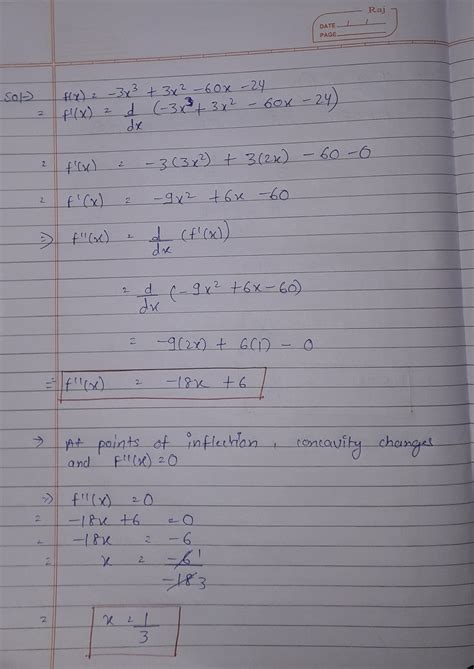 Raj
DATE / /
PAGE
Sol→ f(x) = -3x³ + 3x² - 60x - 24
= f'(x) = d/dx (-3x³ + 3x² - 60x - 24)
= f'(x) = -3(3x²) + 3(2x) - 60 - 0
= f'(x) = -9x² + 6x - 60
⇒ f''(x) = d/dx (f'(x))
= d/dx (-9x² + 6x - 60)
= -9(2x) + 6(1) - 0
= f''(x) = -18x + 6
→ At points of inflection, concavity changes
and f''(x) = 0
⇒ f''(x) = 0
= -18x + 6 = 0
= -18x = -6
= x = -6 1/-18 3
= x = 1/3